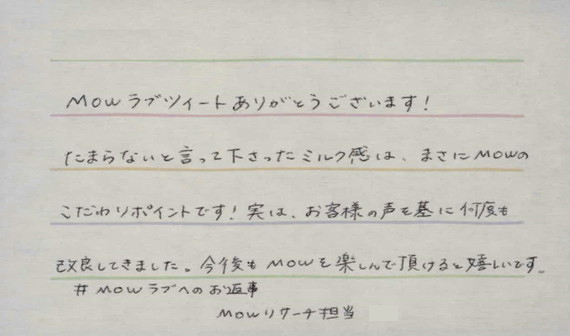 MOWラブツイートありがとうございます!
たまらないと言って下さったミルク感は、まさにMOWの
こだわりポイントです!実は、お客様の声を基に何度も
改良してきました。今後もMOWを楽しんで頂けると嬉しいです。
#MOWラブへのお返事
MOWリサーチ担当